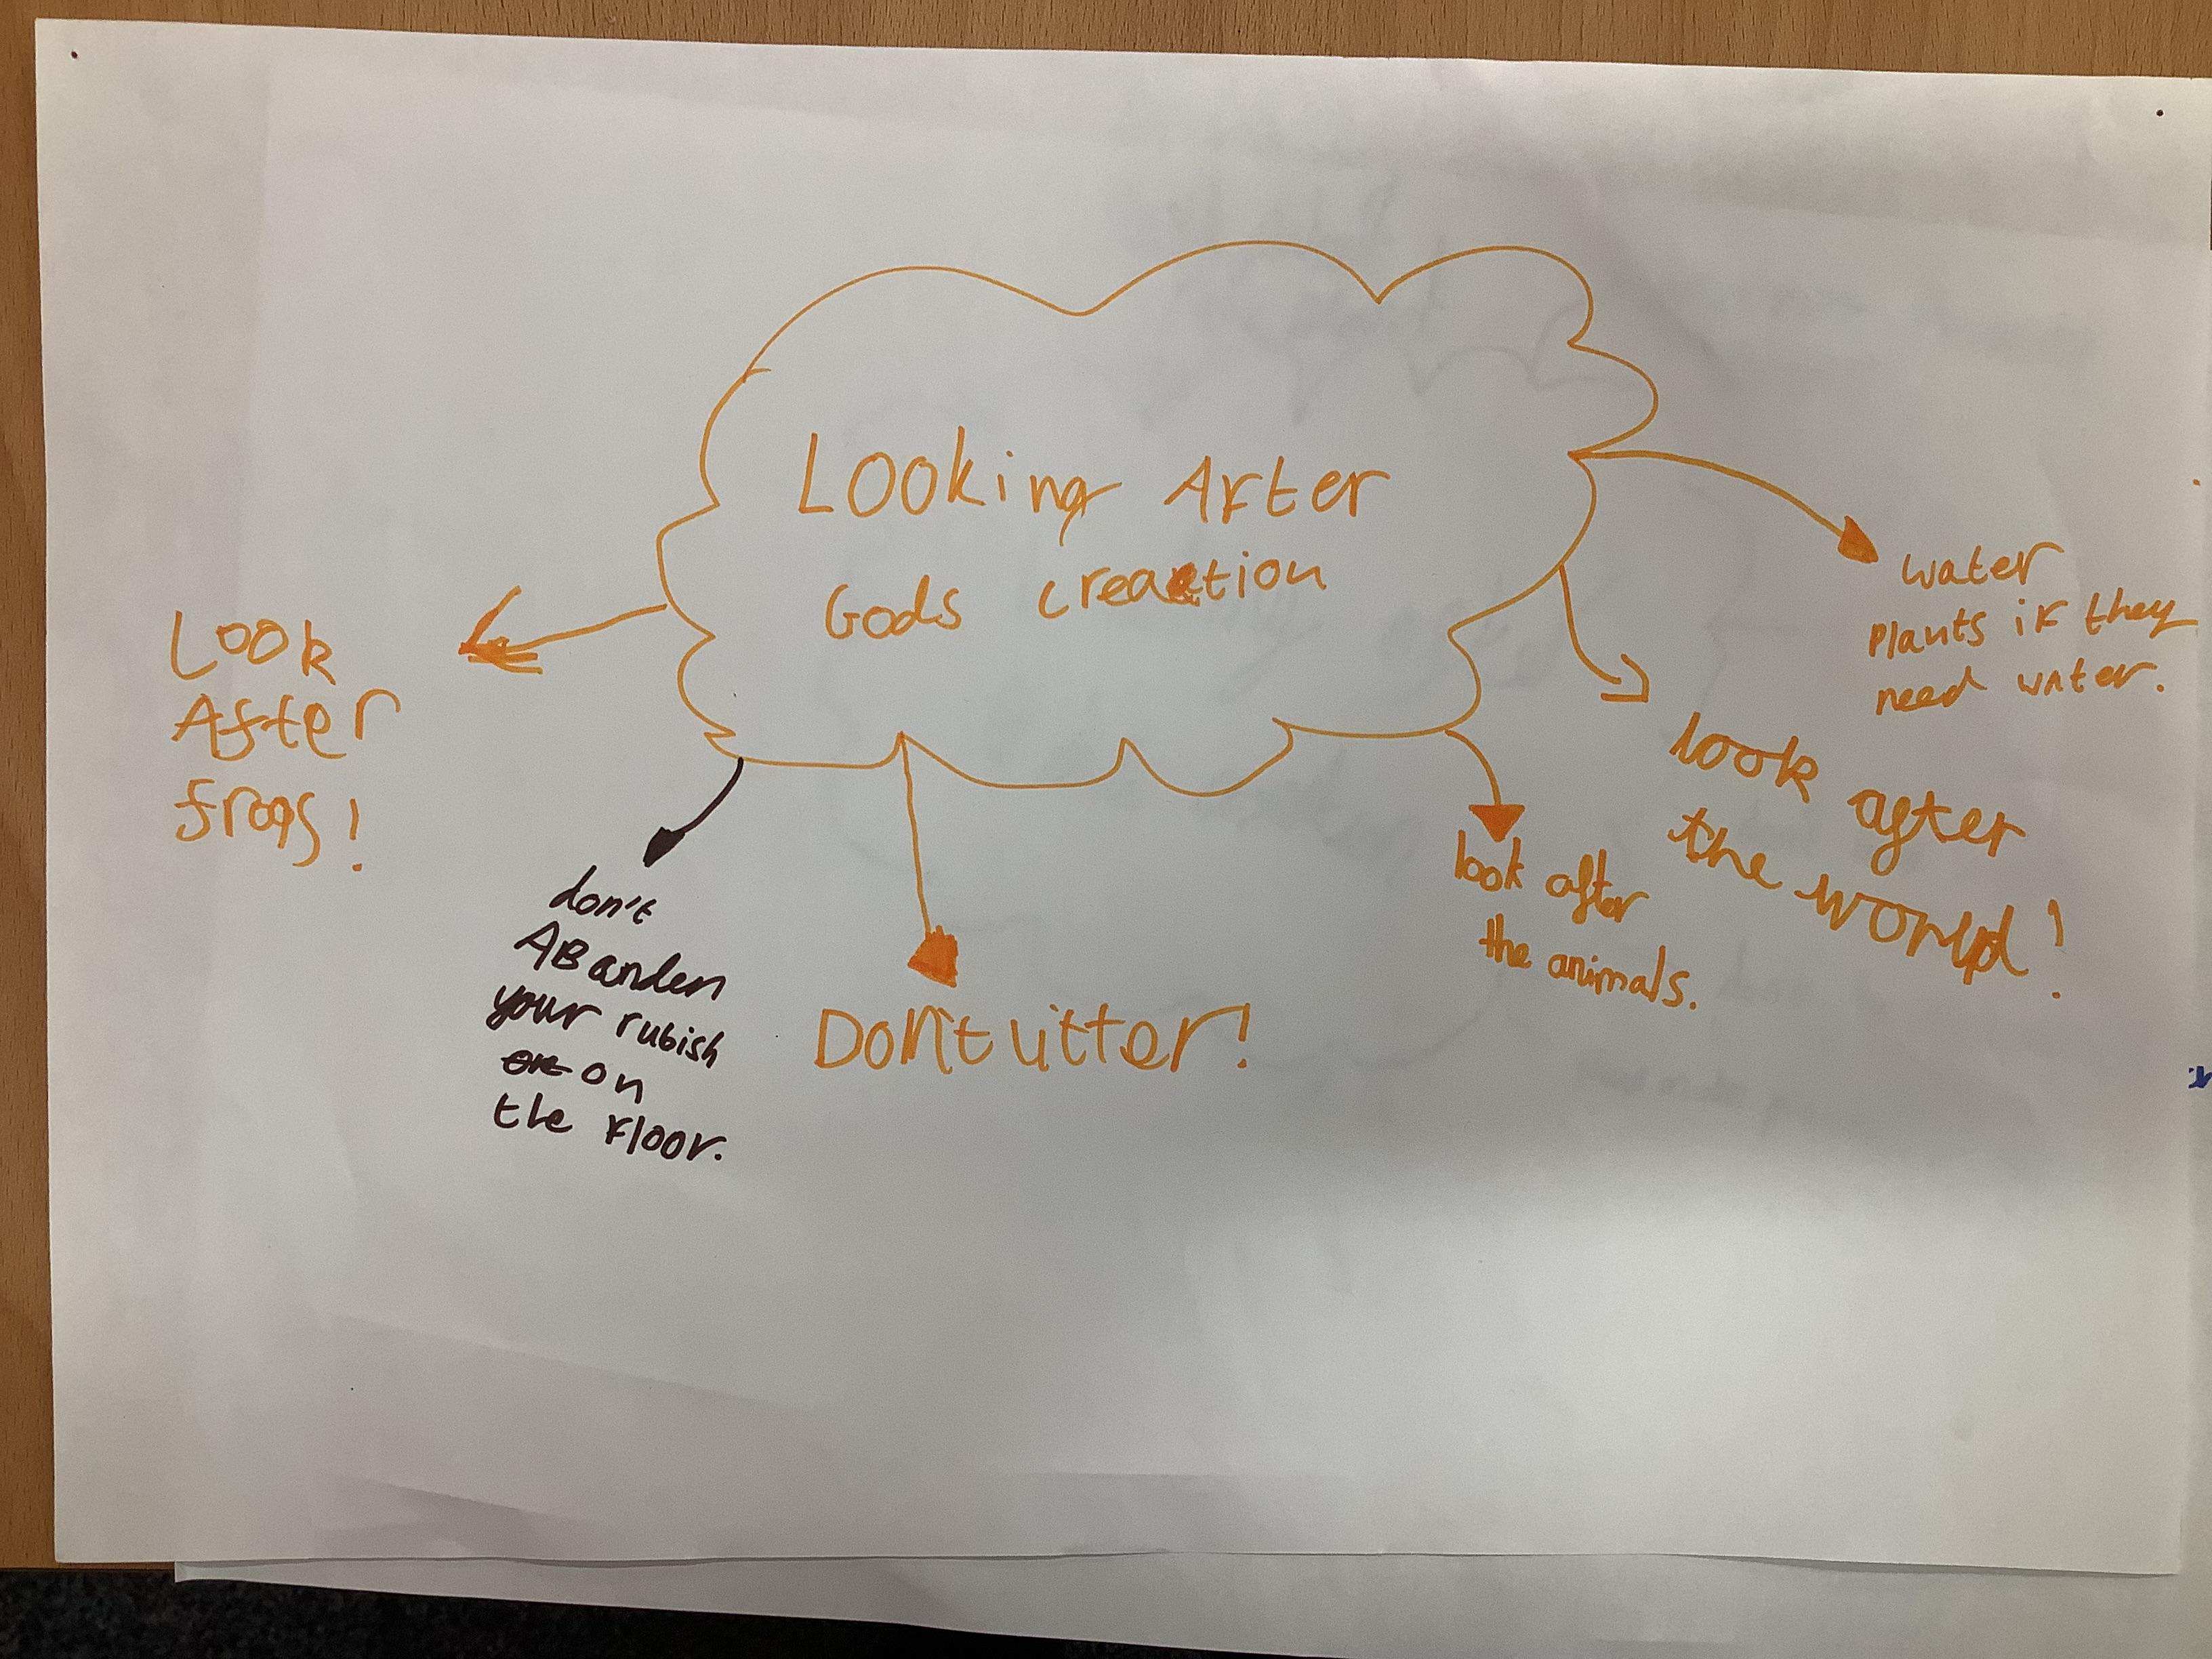 Looking After
Gods creation
water
plants if they
need water.
look after
the world!
look after
the animals.
Don't litter!
don't
ABanden
your rubish
on
the floor.
Look
After
frogs!